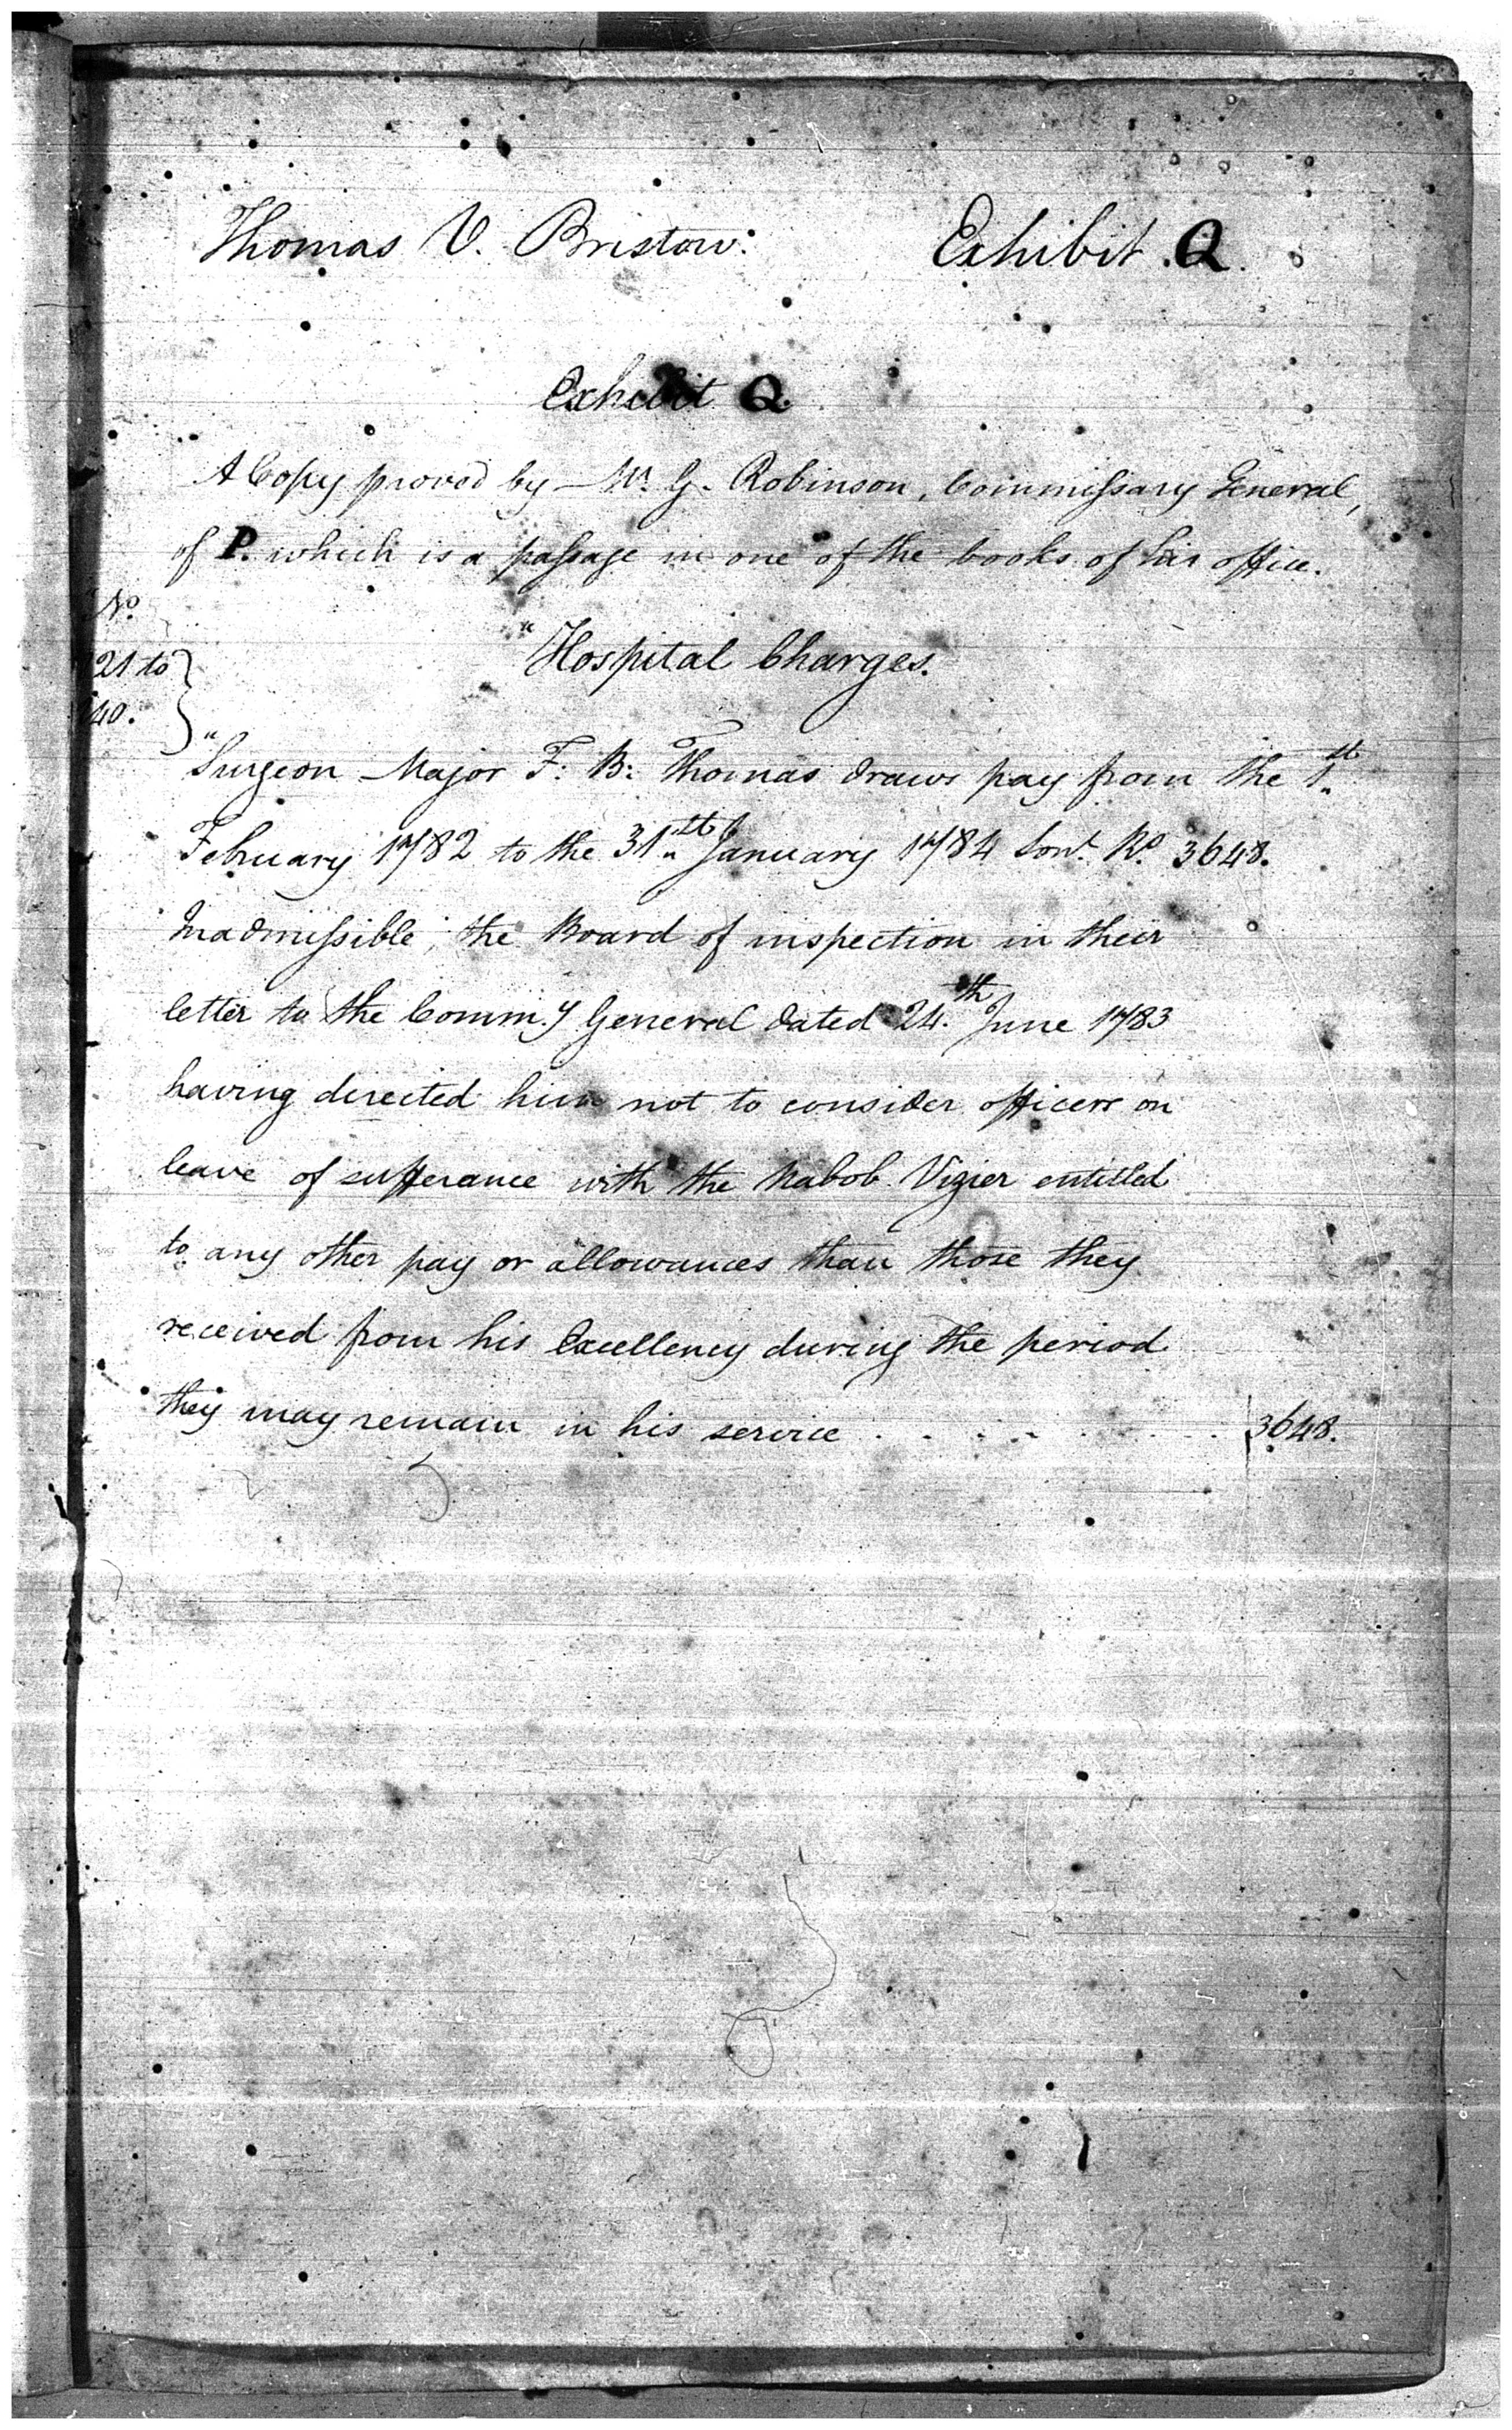 Thomas V. Bristow: Exhibit Q.
Exhibit Q.
A Copy proved by Mr. G. Robinson, Commissary General,
of P. which is a passage in one of the books of his office.
No.
21 to
40.
"Hospital Charges.
"Surgeon Major F: B: Thomas draws pay from the 1st
February 1782 to the 31st January 1784 Sont. Rs. 3648.
Inadmissible, the Board of inspection in their
letter to the Comm.y General dated 24th June 1783
having directed him not to consider officers on
leave of sufferance with the Nabob Vizier entitled
to any other pay or allowances than those they
received from his Excellency during the period
they may remain in his service . . . . . . . . 3648.